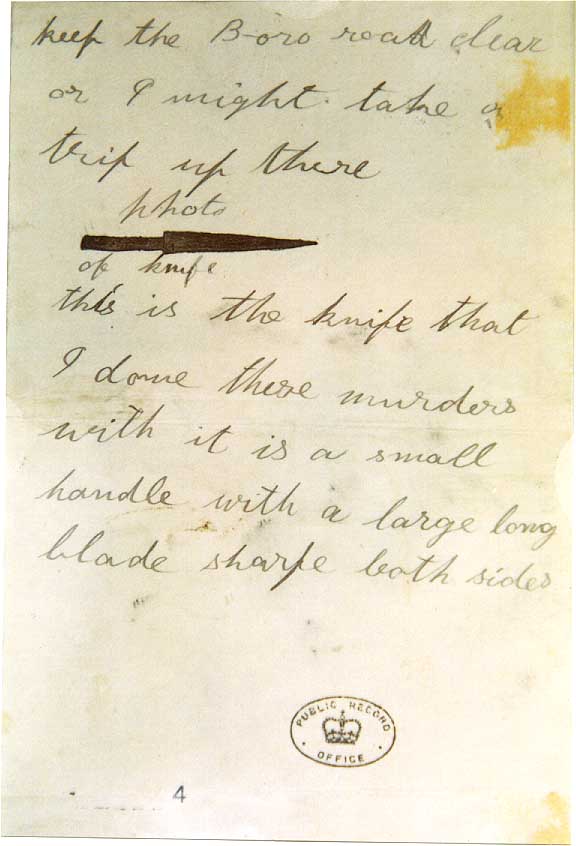 keep the B-oro road clear
or I might take a
trip up there
photo
of knife
this is the knife that
I done these murders
with it is a small
handle with a large long
blade sharpe both sides
PUBLIC RECORD
OFFICE
4